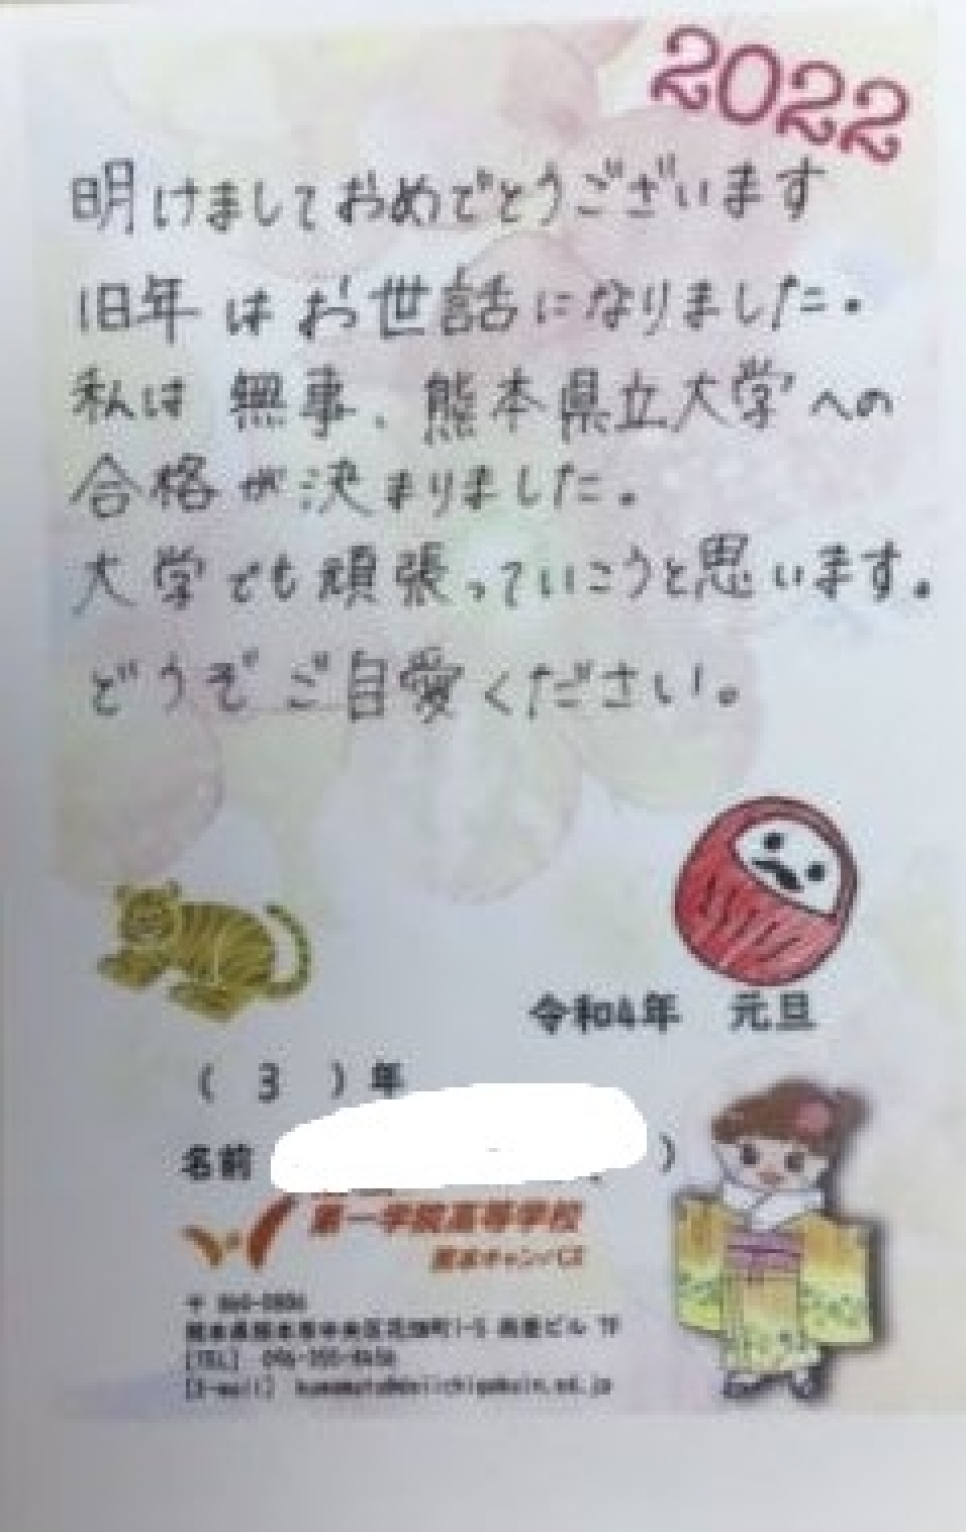 2022
明けましておめでとうございます
旧年はお世話になりました。
私は無事、熊本県立大学への
合格が決まりました。
大学でも頑張っていこうと思います。
どうぞご自愛ください。
令和4年 元旦
( 3 ) 年
名前 )
第一学院高等学校
熊本キャンパス
〒 860-0806
熊本県熊本市中央区花畑町1-5 ビル 7F
[TEL]
[E-mail] kumamoto@daiichigakuin.ed.jp